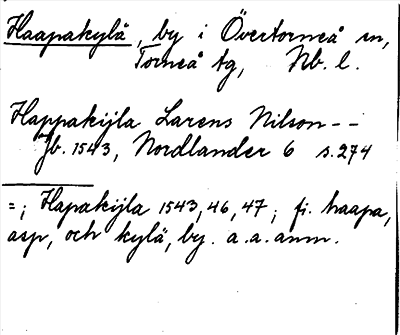 Haapakylä, by i Övertorneå sn,
Torneå tg, Nb. l.
Happakijla Larens Nilson--
Jb. 1543, Nordlander 6 s. 274
=; Hapakijla 1543, 46, 47; fi. haapa,
asp, och kylä, by. a.a. anm.